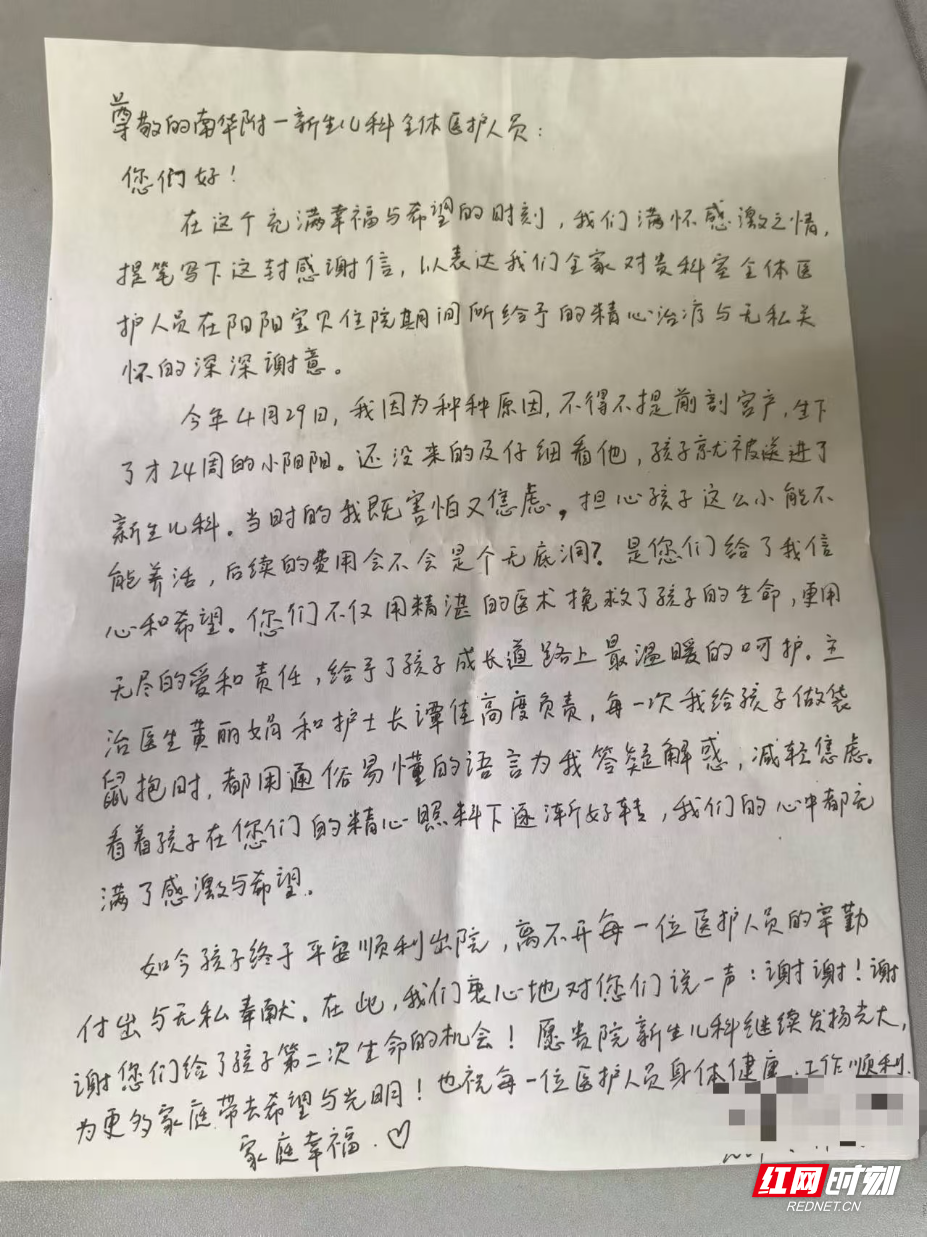 尊敬的南华附一新生儿科全体医护人员：
您們好！
在这个充满幸福与希望的时刻，我们满怀感激之情，
提笔写下这封感谢信，以表达我们全家对贵科室全体医
护人员在阳阳宝贝住院期间所给予的精心治疗与无私关
怀的深深谢意。
今年4月29日，我因为种种原因，不得不提前剖宫产，生下
了才24周的小阳阳。还没来的及仔细看他，孩子就被送进了
新生儿科。当时的我既害怕又焦虑，担心孩子这么小能不
能养活，后续的费用会不会是个无底洞？是您们给了我信
心和希望。您们不仅用精湛的医术挽救了孩子的生命，更用
无尽的爱和责任，给予了孩子成长道路上最温暖的呵护。主
治医生黄丽娟和护士长谭佳高度负责，每一次我给孩子做袋
鼠抱时，都用通俗易懂的语言为我答疑解惑，减轻焦虑。
看着孩子在您们的精心照料下逐渐好转，我们的心中都充
满了感激与希望。
如今孩子终于平安顺利出院，离不开每一位医护人员的辛勤
付出与无私奉献。在此，我们衷心地对您们说一声：谢谢！谢
谢您们给了孩子第二次生命的机会！愿贵院新生儿科继续发扬光大，
为更多家庭带去希望与光明！也祝每一位医护人员身体健康、工作顺利、
家庭幸福.♡
红网时刻
REDNET.CN